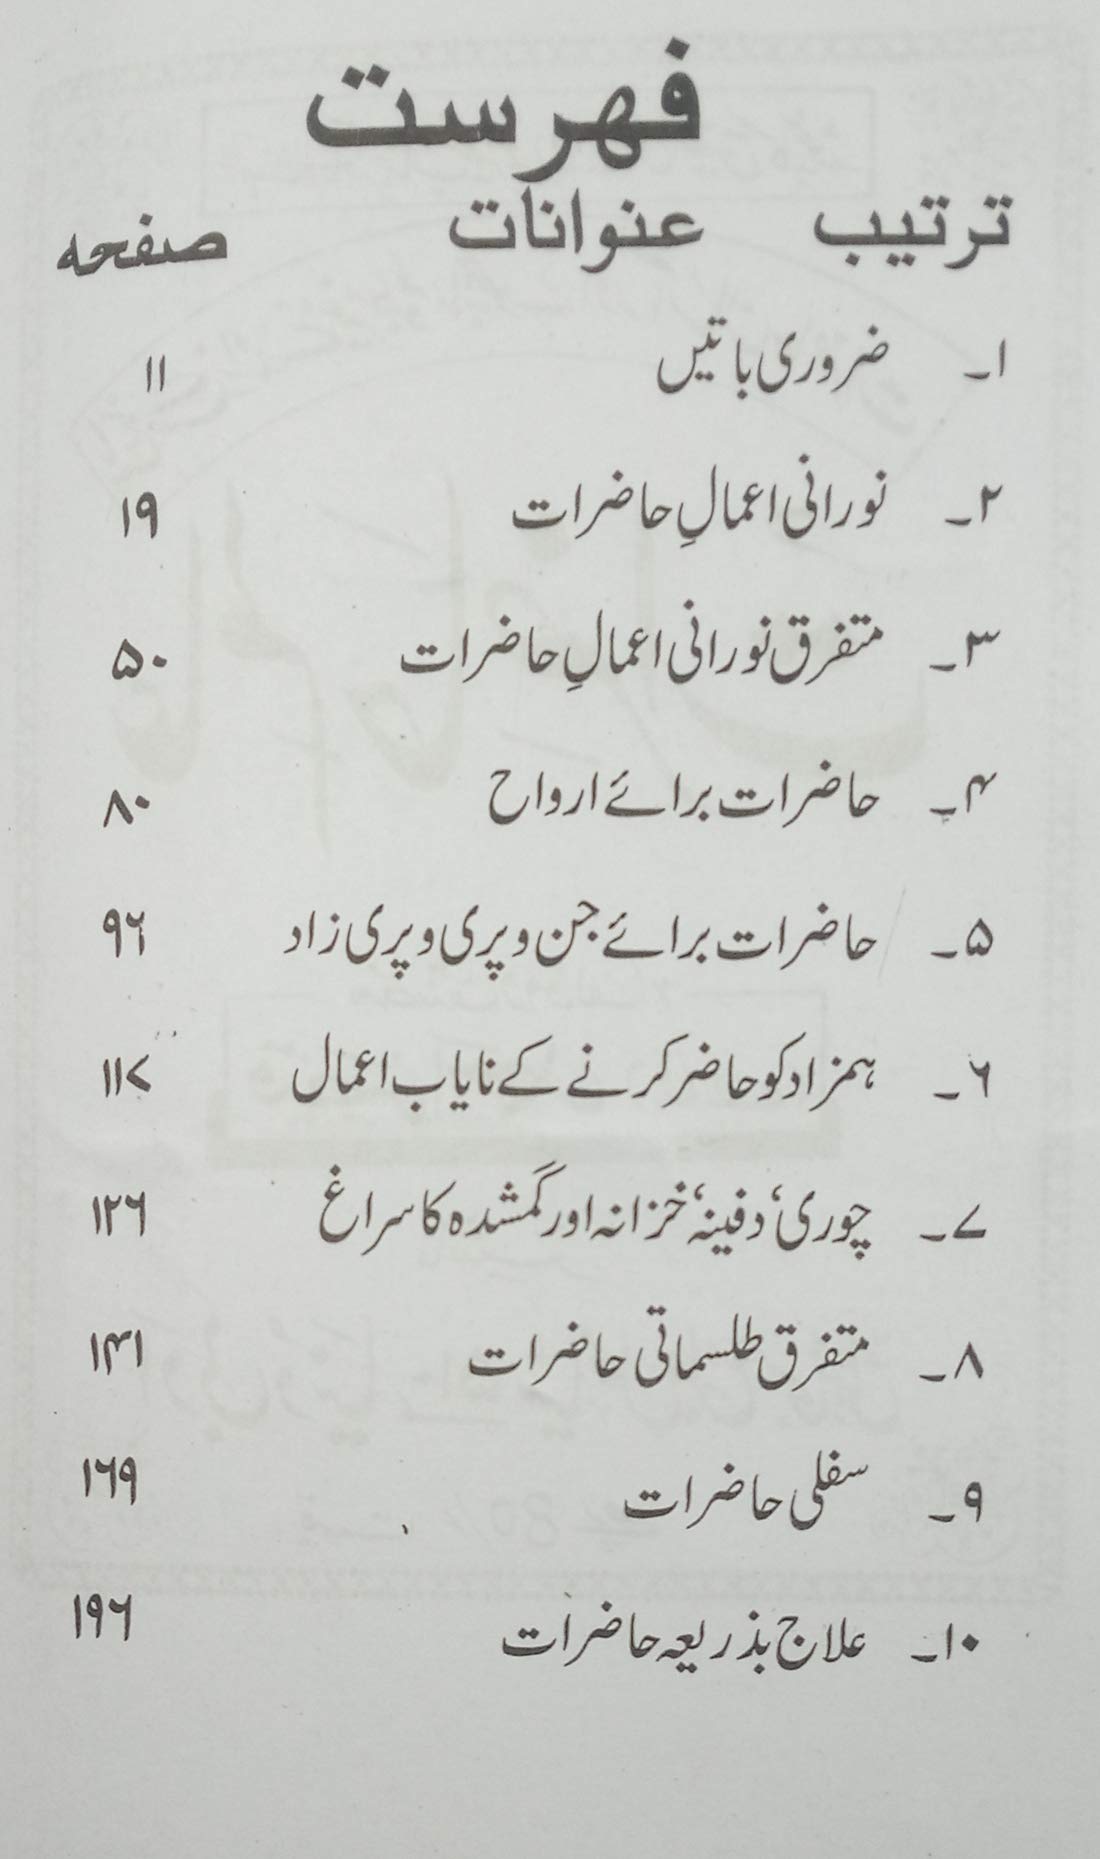 فهرست
ترتیب عنوانات صفحه
۱۔ ضروری باتیں ۱۱
۲۔ نورانی اعمالِ حاضرات ۱۹
۳۔ متفرق نورانی اعمالِ حاضرات ۵۰
۴۔ حاضرات برائے ارواح ۸۰
۵۔ حاضرات برائے جن و پری و پری زاد ۹۶
۶۔ ہمزاد کو حاضر کرنے کے نایاب اعمال ۱۱۷
۷۔ چوری‘ دفینہ‘ خزانہ اور گمشدہ کا سراغ ۱۲۶
۸۔ متفرق طلسماتی حاضرات ۱۴۱
۹۔ سفلی حاضرات ۱۶۹
۱۰۔ علاج بذریعہ حاضرات ۱۹۶